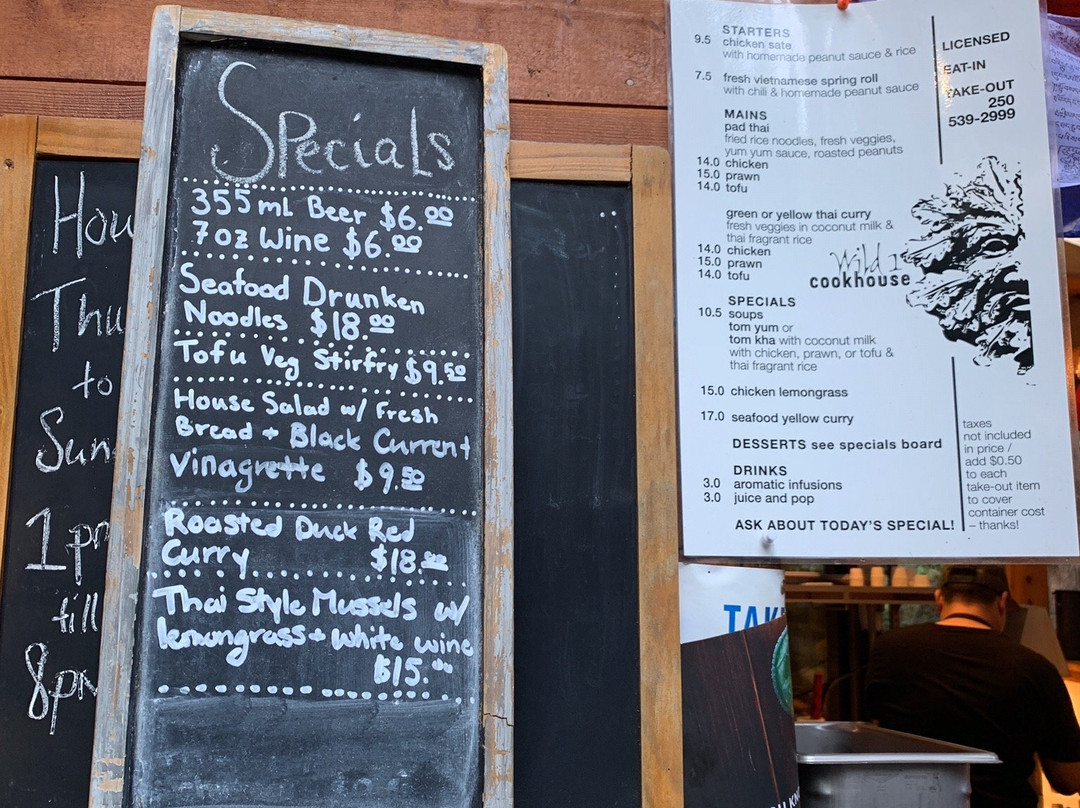 Hou
Thu
to
Sun
1pm
till
8pm
Specials
355ml Beer $6.00
7oz Wine $6.00
Seafood Drunken
Noodles $18.00
Tofu Veg Stirfry $9.50
House Salad w/ Fresh
Bread + Black Current
Vinagrette $9.50
Roasted Duck Red
Curry $18.00
Thai Style Mussels w/
lemongrass + white wine
$15.00
STARTERS
9.5 chicken sate
with homemade peanut sauce & rice
7.5 fresh vietnamese spring roll
with chili & homemade peanut sauce
MAINS
pad thai
fried rice noodles, fresh veggies,
yum yum sauce, roasted peanuts
14.0 chicken
15.0 prawn
14.0 tofu
green or yellow thai curry
fresh veggies in coconut milk &
thai fragrant rice
14.0 chicken
15.0 prawn
14.0 tofu
SPECIALS
10.5 soups
tom yum or
tom kha with coconut milk
with chicken, prawn, or tofu &
thai fragrant rice
15.0 chicken lemongrass
17.0 seafood yellow curry
DESSERTS see specials board
DRINKS
3.0 aromatic infusions
3.0 juice and pop
ASK ABOUT TODAY'S SPECIAL!
LICENSED
EAT-IN
TAKE-OUT
250
539-2999
Wild
cookhouse
taxes
not included
in price /
add $0.50
to each
take-out item
to cover
container cost
– thanks!
TAK